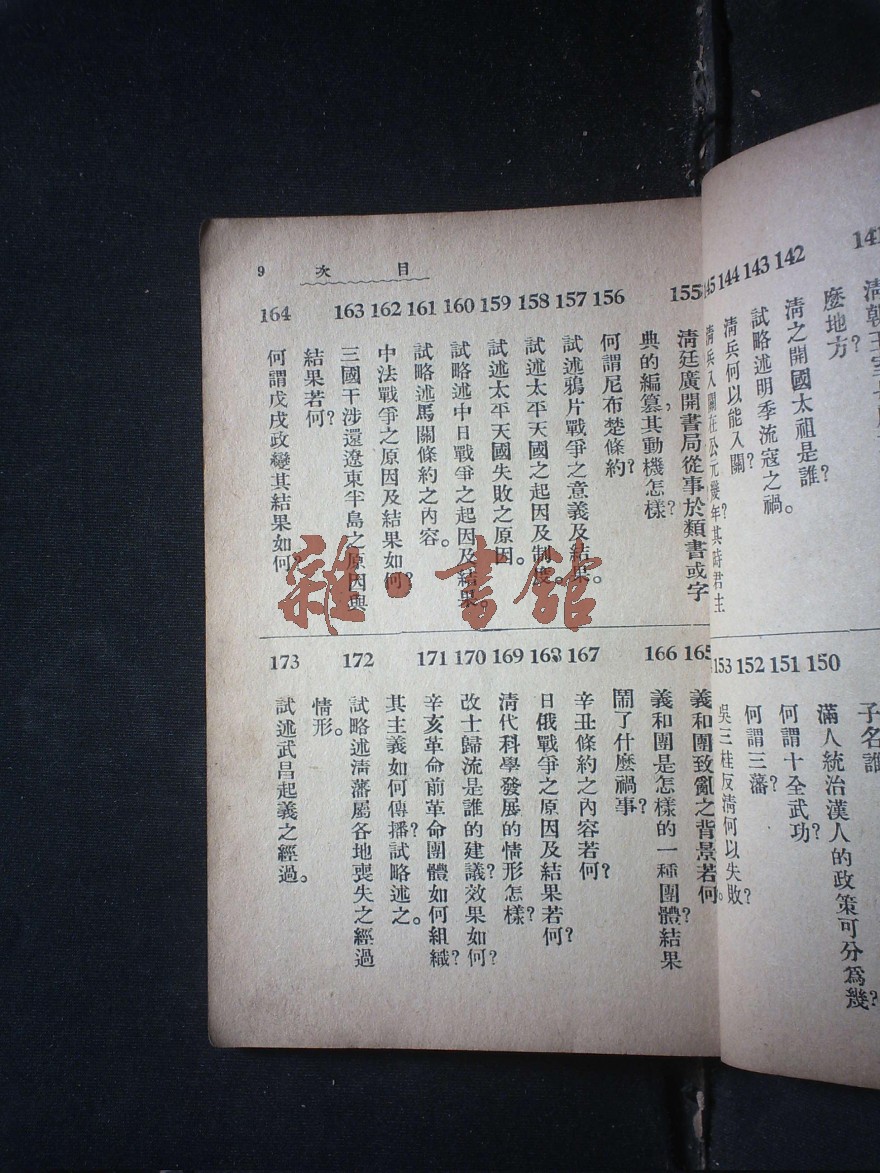 141
麼地方?
142 清之開國太祖是誰?
143 試略述明季流寇之禍。
144 清兵何以能入關?
145 清兵入關在公元幾年?其時君主
子名誰
150 滿人統治漢人的政策可分為幾?
151 何謂十全武功?
152 何謂三藩?
153 吳三桂反清何以失敗?
目次 9
155 清廷廣開書局從事於類書或字
典的編纂,其動機怎樣?
156 何謂尼布楚條約?
157 試述鴉片戰爭之意義及結果。
158 試述太平天國之起因及制度。
159 試述太平天國失敗之原因。
160 試略述中日戰爭之起因及結果。
161 試略述馬關條約之內容。
162 中法戰爭之原因及結果如何?
163 三國干涉還遼東半島之原因與
結果若何?
164 何謂戊戌政變其結果如何?
165 義和團致亂之背景若何。
166 義和團是怎樣的一種團體?結果
鬧了什麼禍事?
167 辛丑條約之內容若何?
168 日俄戰爭之原因及結果若何?
169 清代科學發展的情形怎樣?
170 改士歸流是誰的建議?效果如何?
171 辛亥革命前革命團體如何組織?
其主義如何傳播?試略述之。
172 試略述清藩屬各地喪失之經過
情形。
173 試述武昌起義之經過。
雜·書館